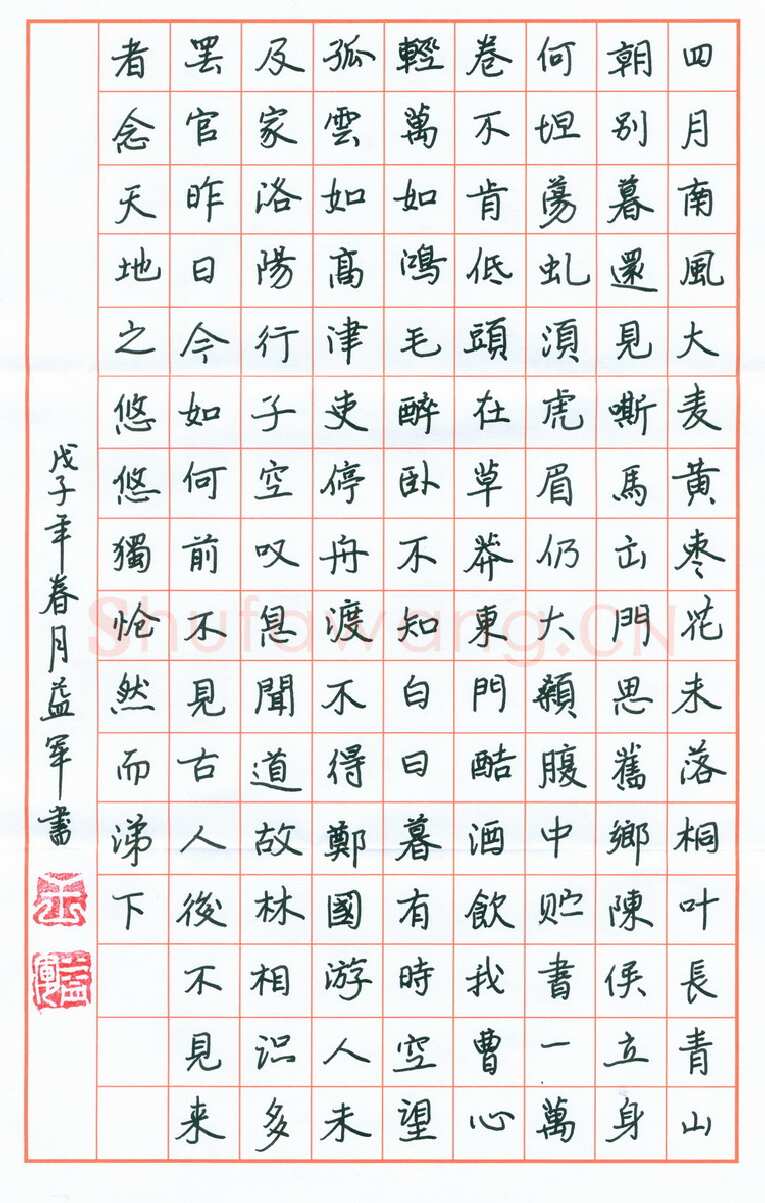 四月南風大麦黄枣花未落桐叶長青山
朝别暮還見嘶馬出門思舊鄉陳侯立身
何坦蕩虬須虎眉仍大顙腹中贮書一萬
卷不肯低頭在草莽東門酤酒飲我曹心
輕萬如鴻毛醉卧不知白日暮有時空望
孤雲如高津吏停舟渡不得鄭國游人未
及家洛陽行子空叹息聞道故林相识多
罢官昨日今如何前不見古人後不見来
者念天地之悠悠獨怆然而涕下
戊子年春月益军書
Shufawang.CN